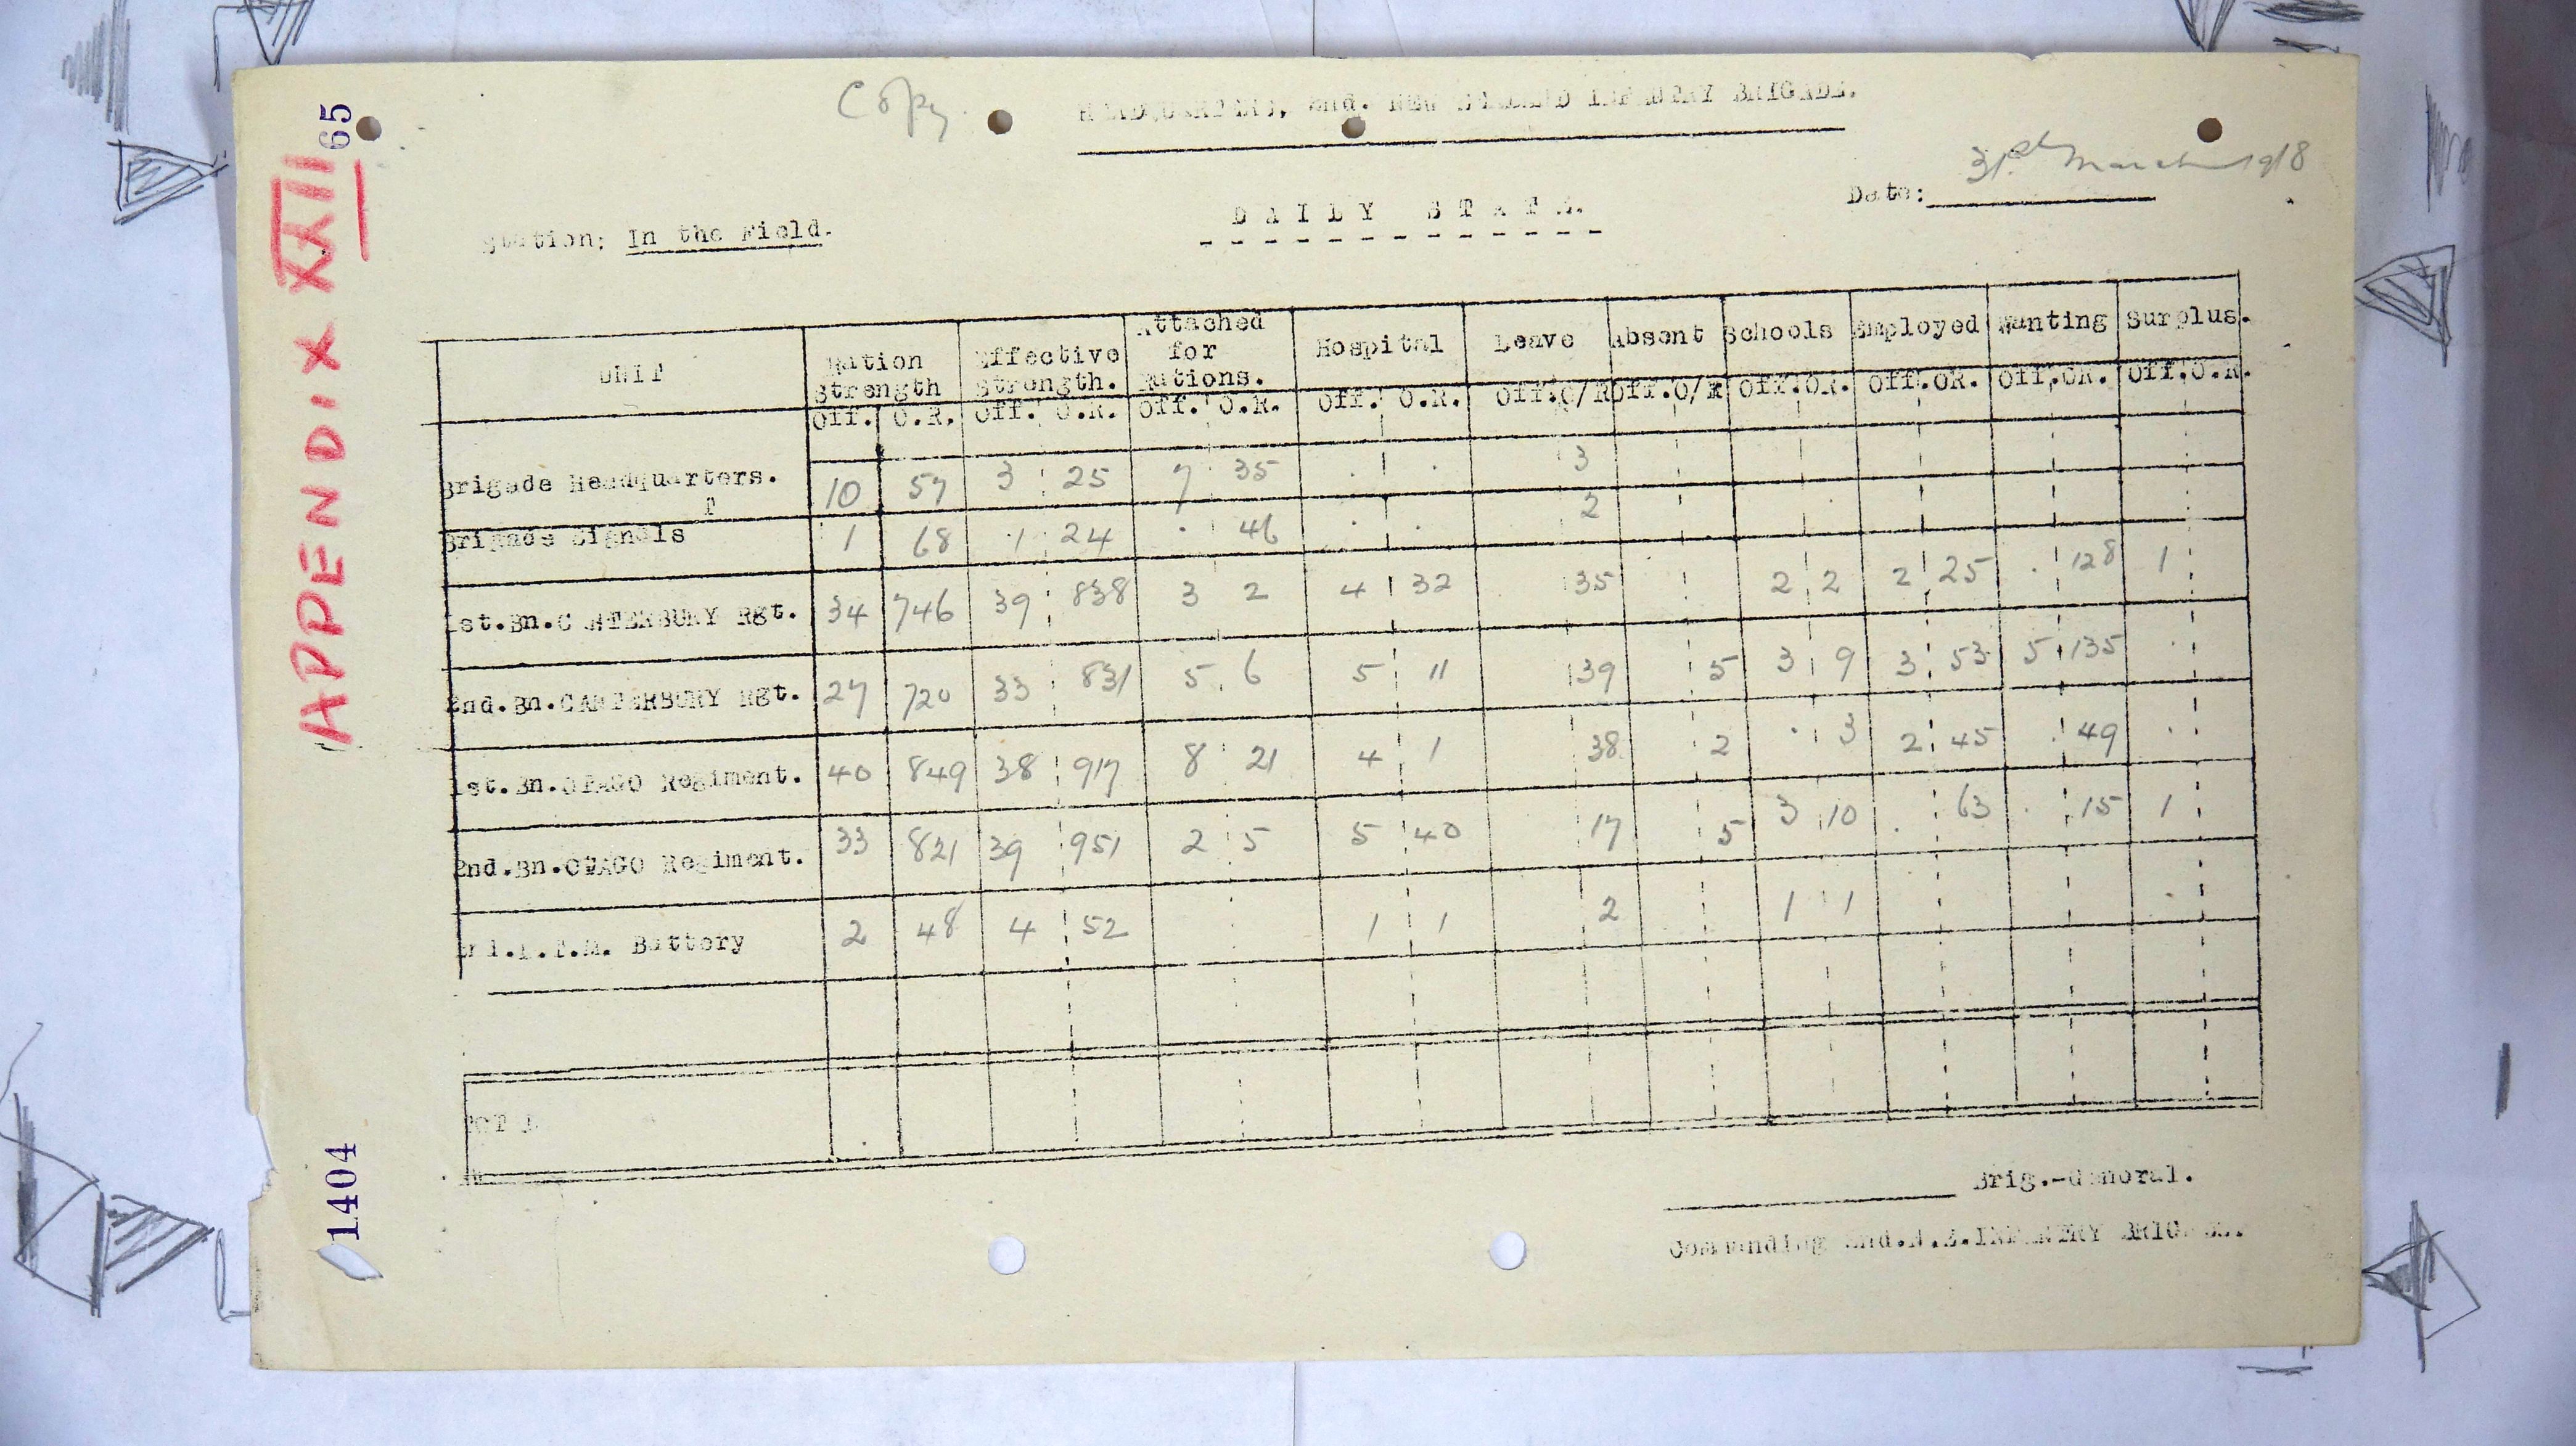 Copy
HEADQUARTERS, 2nd. NEW ZEALAND INFANTRY BRIGADE.
65
APPENDIX XXIII
1404
Date: 31st March 1918
DAILY STATE.
Station; In the Field.
UNIT Ration Strength Effective Strength. Attached for Rations. Hospital Leave Absent Schools Employed Wanting Surplus.
Off. O.R. Off. O.R. Off. O.R. Off. O.R. Off. O/R Off. O/R Off. OR. Off. OR. Off. OR. Off. O.R.
Brigade Headquarters. 10 57 3 25 7 35 . . 3
Brigade Signals 1 68 1 24 . 46 . . 2
1st.Bn.CANTERBURY Rgt. 34 746 39 838 3 2 4 32 35 2 2 2 25 . 128 1
2nd.Bn.CANTERBURY Rgt. 27 720 33 831 5 6 5 11 39 5 3 9 3 53 5 135 .
1st.Bn.OTAGO Regiment. 40 849 38 917 8 21 4 1 38 2 . 3 2 45 . 49 .
2nd.Bn.OTAGO Regiment. 33 821 39 951 2 5 5 40 17 5 3 10 . 63 . 15 1
2nd.L.T.M. Battery 2 48 4 52 1 1 2 1 1 .
Brig.-General.
Commanding 2nd.N.Z.INFANTRY BRIGADE.